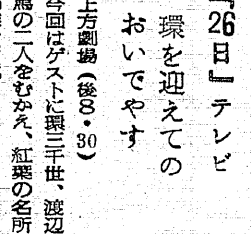 『26日』テレビ
環を迎えての
おいでやす
上方劇場（後8・30）
今回はゲストに環三千世、渡辺
鳰の二人をむかえ、紅葉の名所